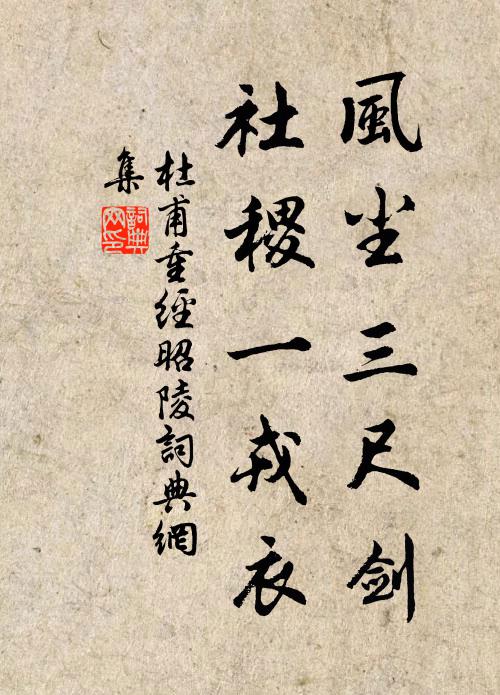 風尘三尺剑
社稷一戎衣
杜甫重經昭陵詞典網
集
詞典
网印